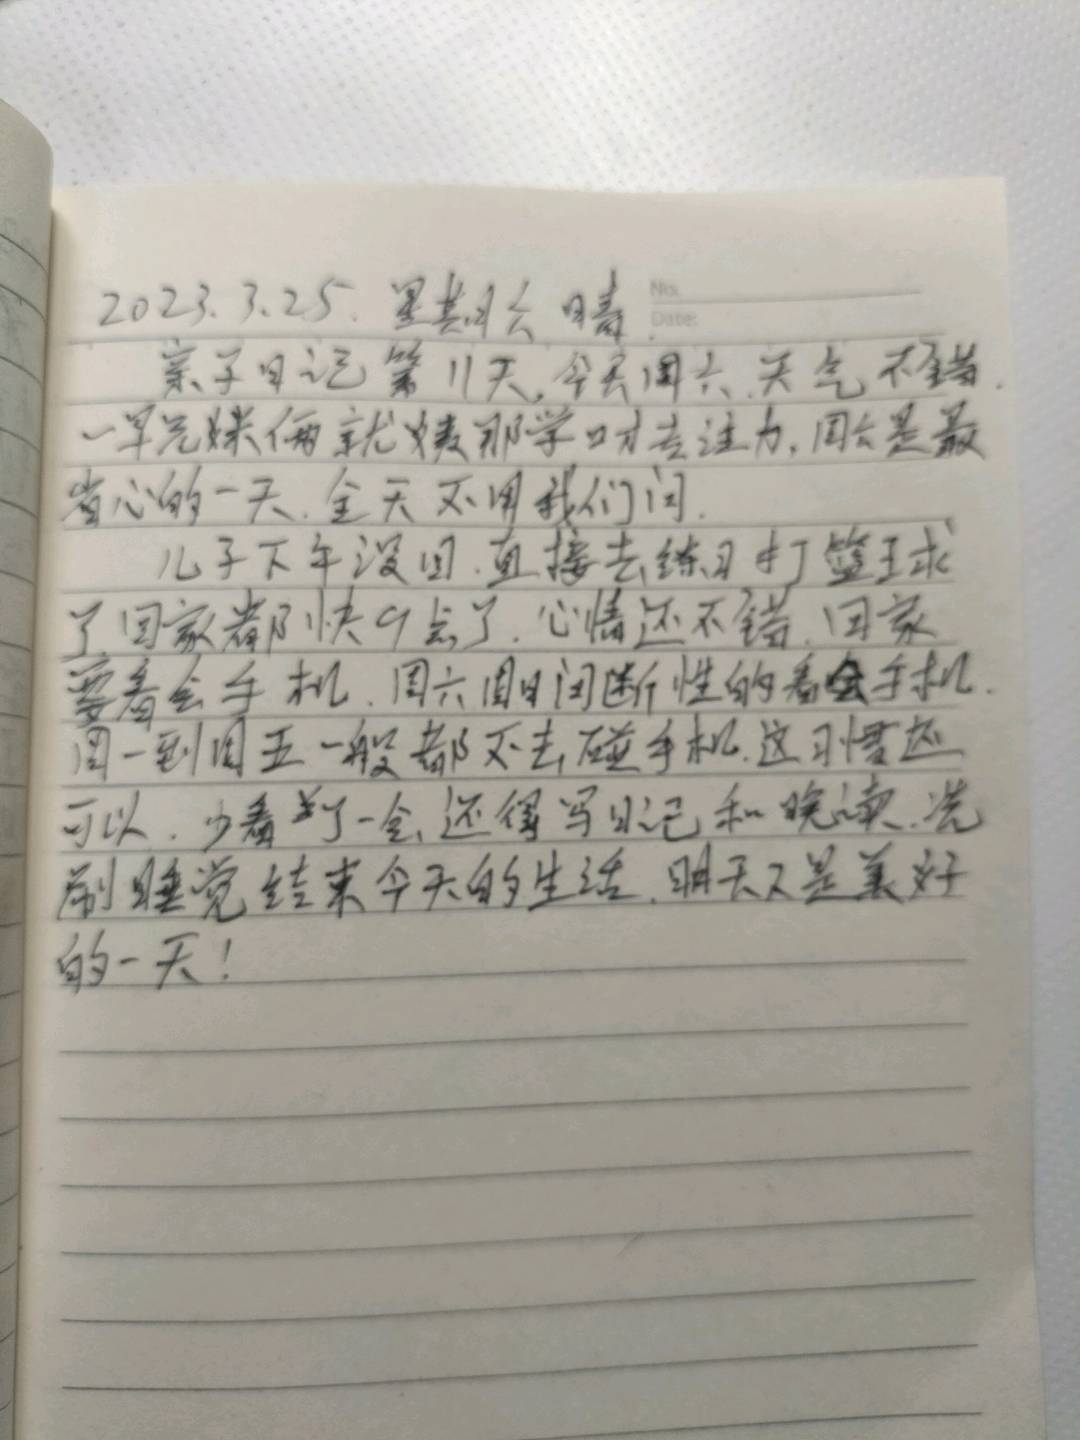 2023.3.25. 星期六 晴.
No.
Date:
亲子日记第11天,今天周六.天气不错.
一早兄妹俩就姨那学口才专注力,周六是最
省心的一天.全天不用我们问.
儿子下午没回.直接去练习打篮球
了回家都快9点了.心情还不错.回家
要看会手机.周六周日间断性的看会手机.
周一到周五一般都不去碰手机.这习惯还
可以.少看了一会,还得写日记和晚读.洗
刷睡觉结束今天的生活.明天又是美好
的一天!